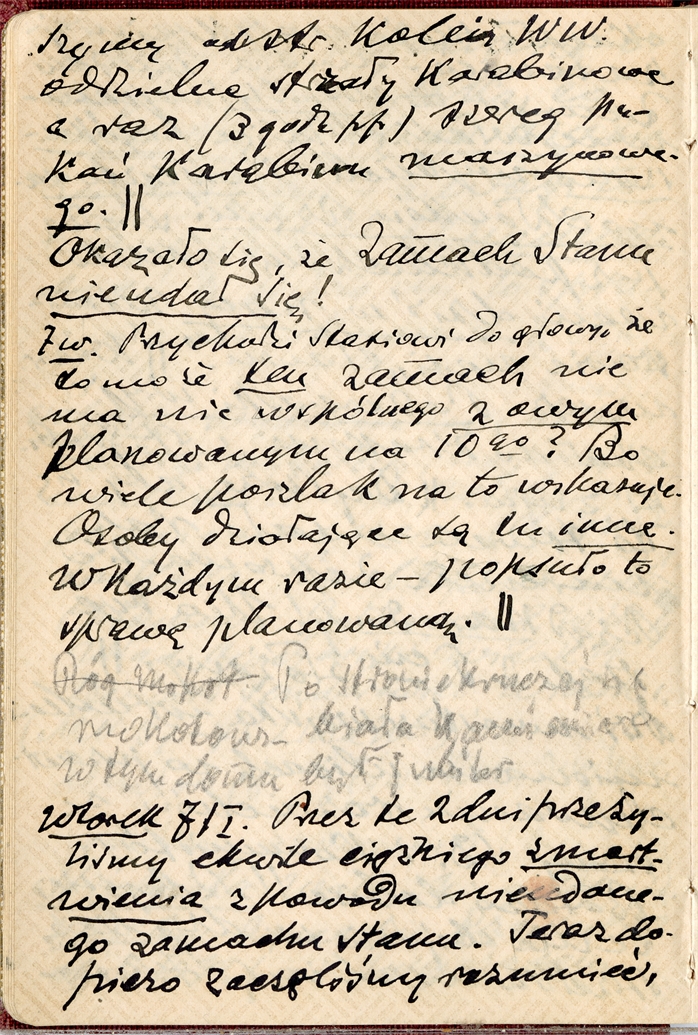 szymy od str. Kolei WW.
oddzielne strzały Karabinowe
a raz (3 godz pp.) szereg pu-
kań Karabinu maszynowe-
go. ||
Okazało się, że Zamach Stanu
nie udał się!
7 w. Przychodzi Stasiowi do głowy, że
to może ten zamach nie
ma nic wspólnego z owym
planowanym na 10go? Bo
wiele poszlak na to wskazuje.
Osoby działające są tu inne.
W Każdym razie – popsuło to
sprawę planowaną. ||
Róg Mokot. Po stronie Kruczej
mokotows- biała Kamienica
w tym domu był
Wtorek 7/I. Przez te 2 dni przeży-
liśmy chwile ciężkiego zmart-
wienia z powodu nieudane-
go zamachu stanu. Teraz do-
piero zaczęliśmy rozumieć,